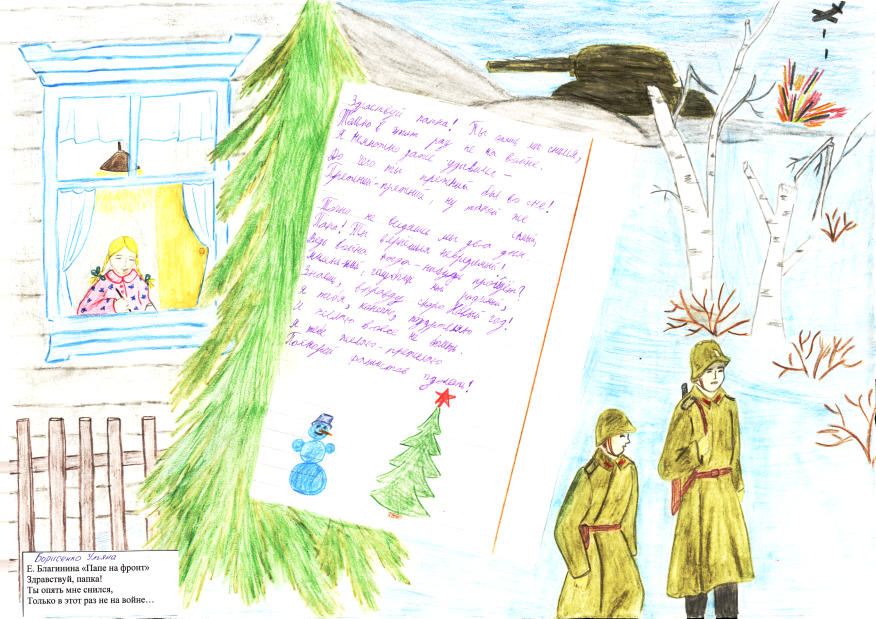 Здраствуй папка! Ты опять мне снился,
Только в этот раз не на войне.
Я немножко даже удивился -
До чего ты прежний был во сне!
Прежний-прежний, ну такой же
самый,
Точно не видались мы два дня.
Папа! Ты вернёшься невредимый!
Ведь война когда-нибудь пройдёт?
Миленький, голубчик мой родимый,
Знаешь, вправду скоро Новый год!
Я тебя, конечно, поздравляю
И желаю вовсе не болеть.
Я тебе желаю-прежелаю
Поскорей фашистов
Борисенко Ульяна
Е. Благинина «Папе на фронт»
Здравствуй, папка!
Ты опять мне снился,
Только в этот раз не на войне…